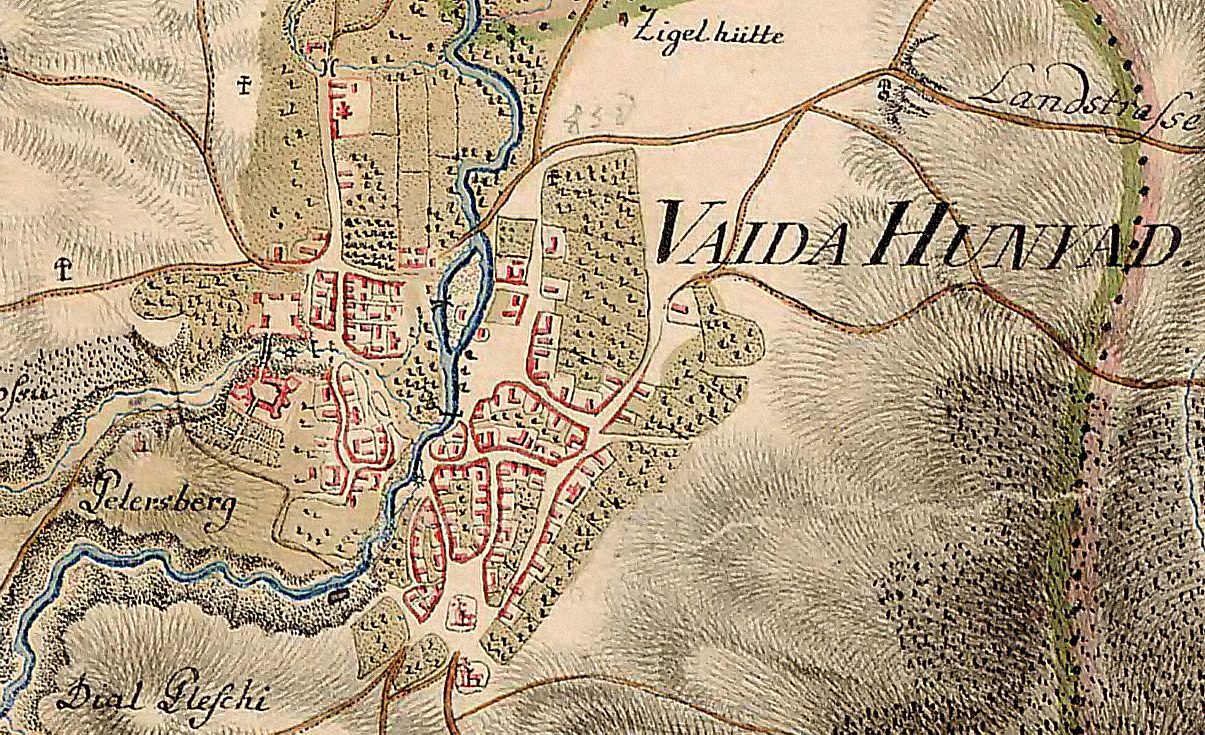 Zigelhütte
Landstraſse
VAIDA HUNYAD.
Petersberg
Dial Pleſchi